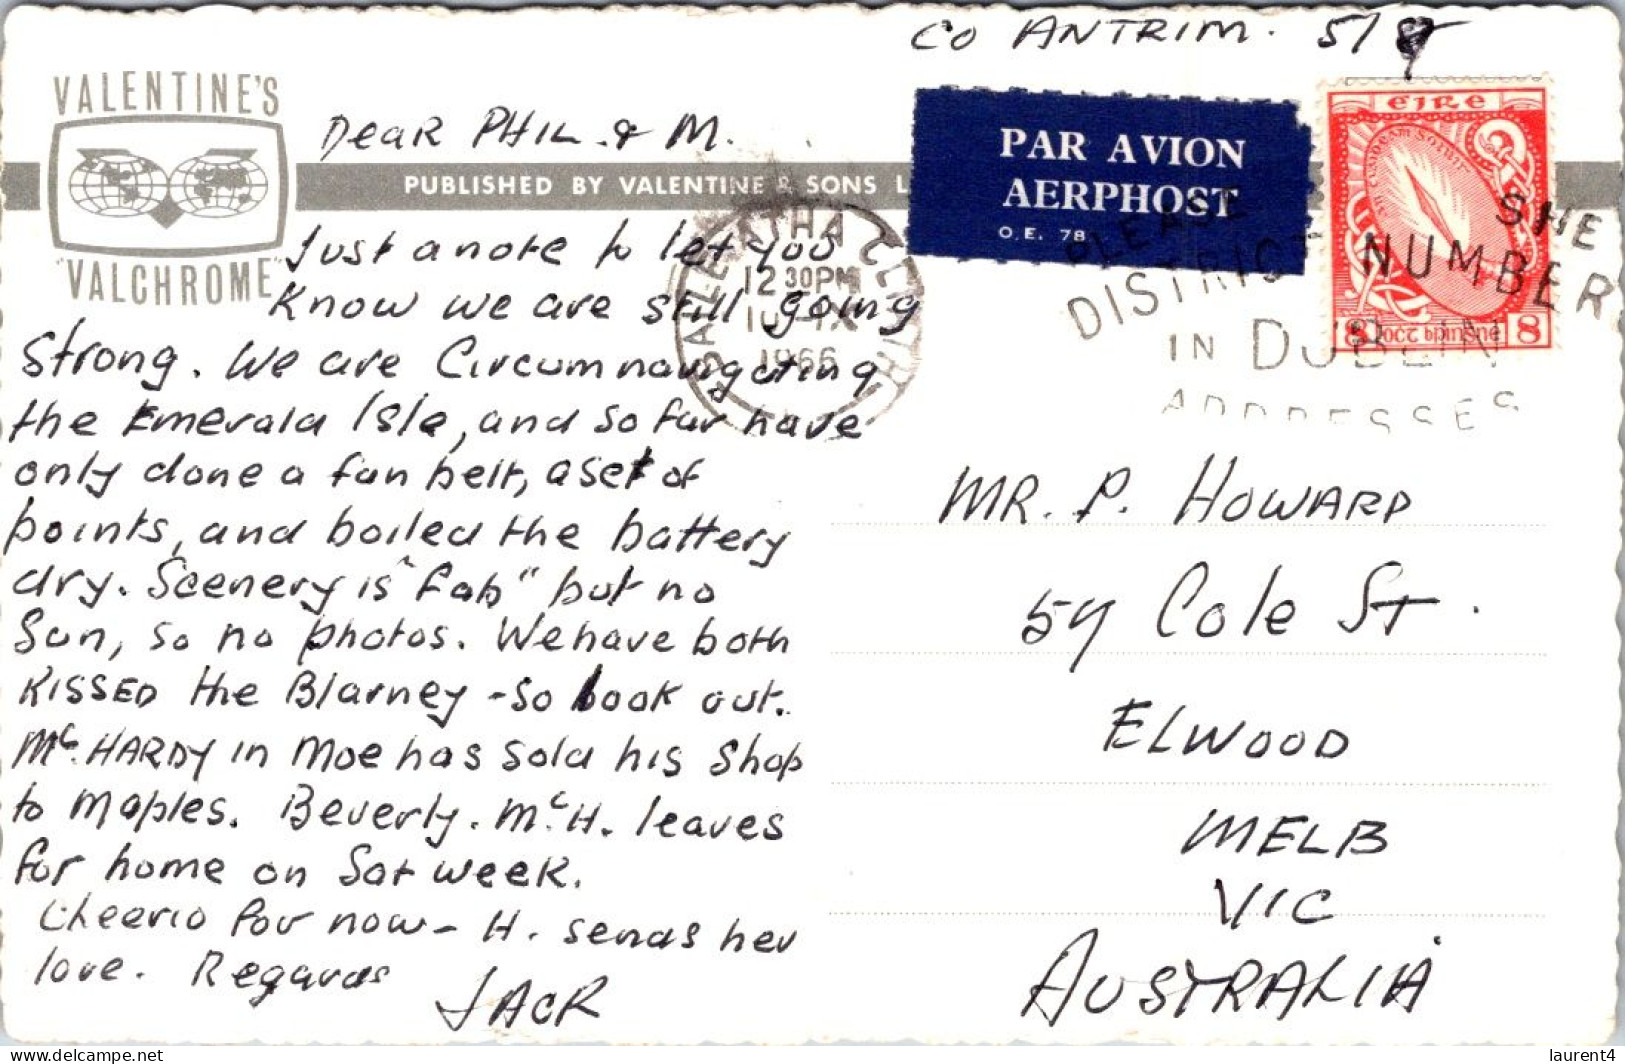 CO ANTRIM. 5/9
VALENTINE'S
"VALCHROME"
Dear PHIL. & M.
PUBLISHED BY VALENTINE & SONS L
Just a note to let you
Know we are still going
Strong. We are Circumnavigating
the Emerald Isle, and so far have
only done a fan belt, a set of
points, and boiled the battery
dry. Scenery is "fab" but no
Sun, so no photos. We have both
KISSED the Blarney - so look out.
McHARDY in Moe has sold his shop
to Maples. Beverly. McH. leaves
for home on Sat week.
Cheerio for now - H. sends her
love. Regards
JACK
PAR AVION
AERPHOST
O.E. 78
éiRe
8 8
12 30PM
10 IX
1966
PLEASE SHE
DISTRICT NUMBER
IN DUBLIN
ADDRESSES
MR. P. HOWARD
54 Cole St.
ELWOOD
MELB
VIC
AUSTRALIA
laurent4